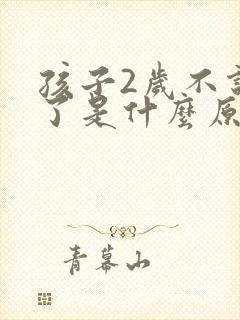 孩子2歲不
了是什麼原
青幕山